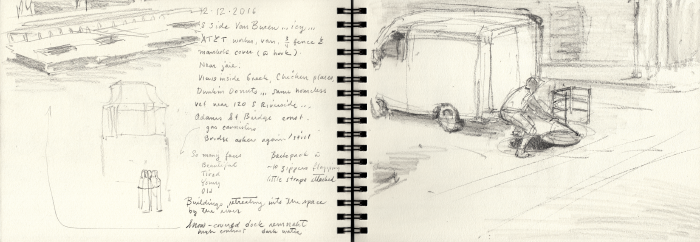 12.12.2016
S Side Van Buren ... icy ...
AT&T worker, van, fence &
manhole cover (w/ hook).
Near jail.
Views inside
Chicken place,
Dunkin Donuts ... same homeless
vet near 120 S Riverside ...
Adams St. Bridge const.
gas cannisters
Bridge
again/
So many faces
Beautiful
Tired
Young
Old
Backpack w/
zippers flapping
little straps attached
Buildings retreating into the space
by the river
Snow-covered dock remnant
dark water